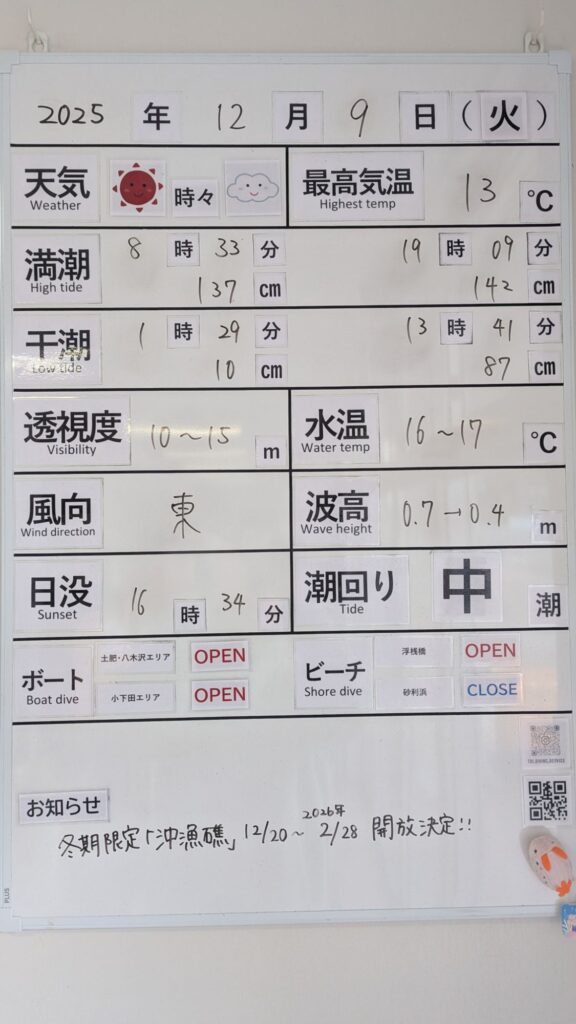 2025 年 12 月 9 日 (火)
天気 時々 最高気温 13 ℃
Weather Highest temp
満潮 8 時 33 分 19 時 09 分
High tide 137 cm 142 cm
干潮 1 時 29 分 13 時 41 分
Low tide 10 cm 87 cm
透視度 10～15 m 水温 16～17 ℃
Visibility Water temp
風向 東 波高 0.7→0.4 m
Wind direction Wave height
日没 16 時 34 分 潮回り 中 潮
Sunset Tide
ボート 土肥・八木沢エリア OPEN ビーチ 浮桟橋 OPEN
Boat dive 小下田エリア OPEN Shore dive 砂利浜 CLOSE
お知らせ
冬期限定「沖漁礁」12/20～2026年2/28 開放決定!!
PLUS